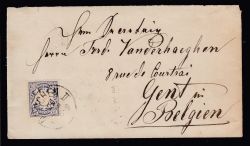 Herrn Ferd. Vanderhaeghen
8 rue de Courtrai
Gent in
Belgien